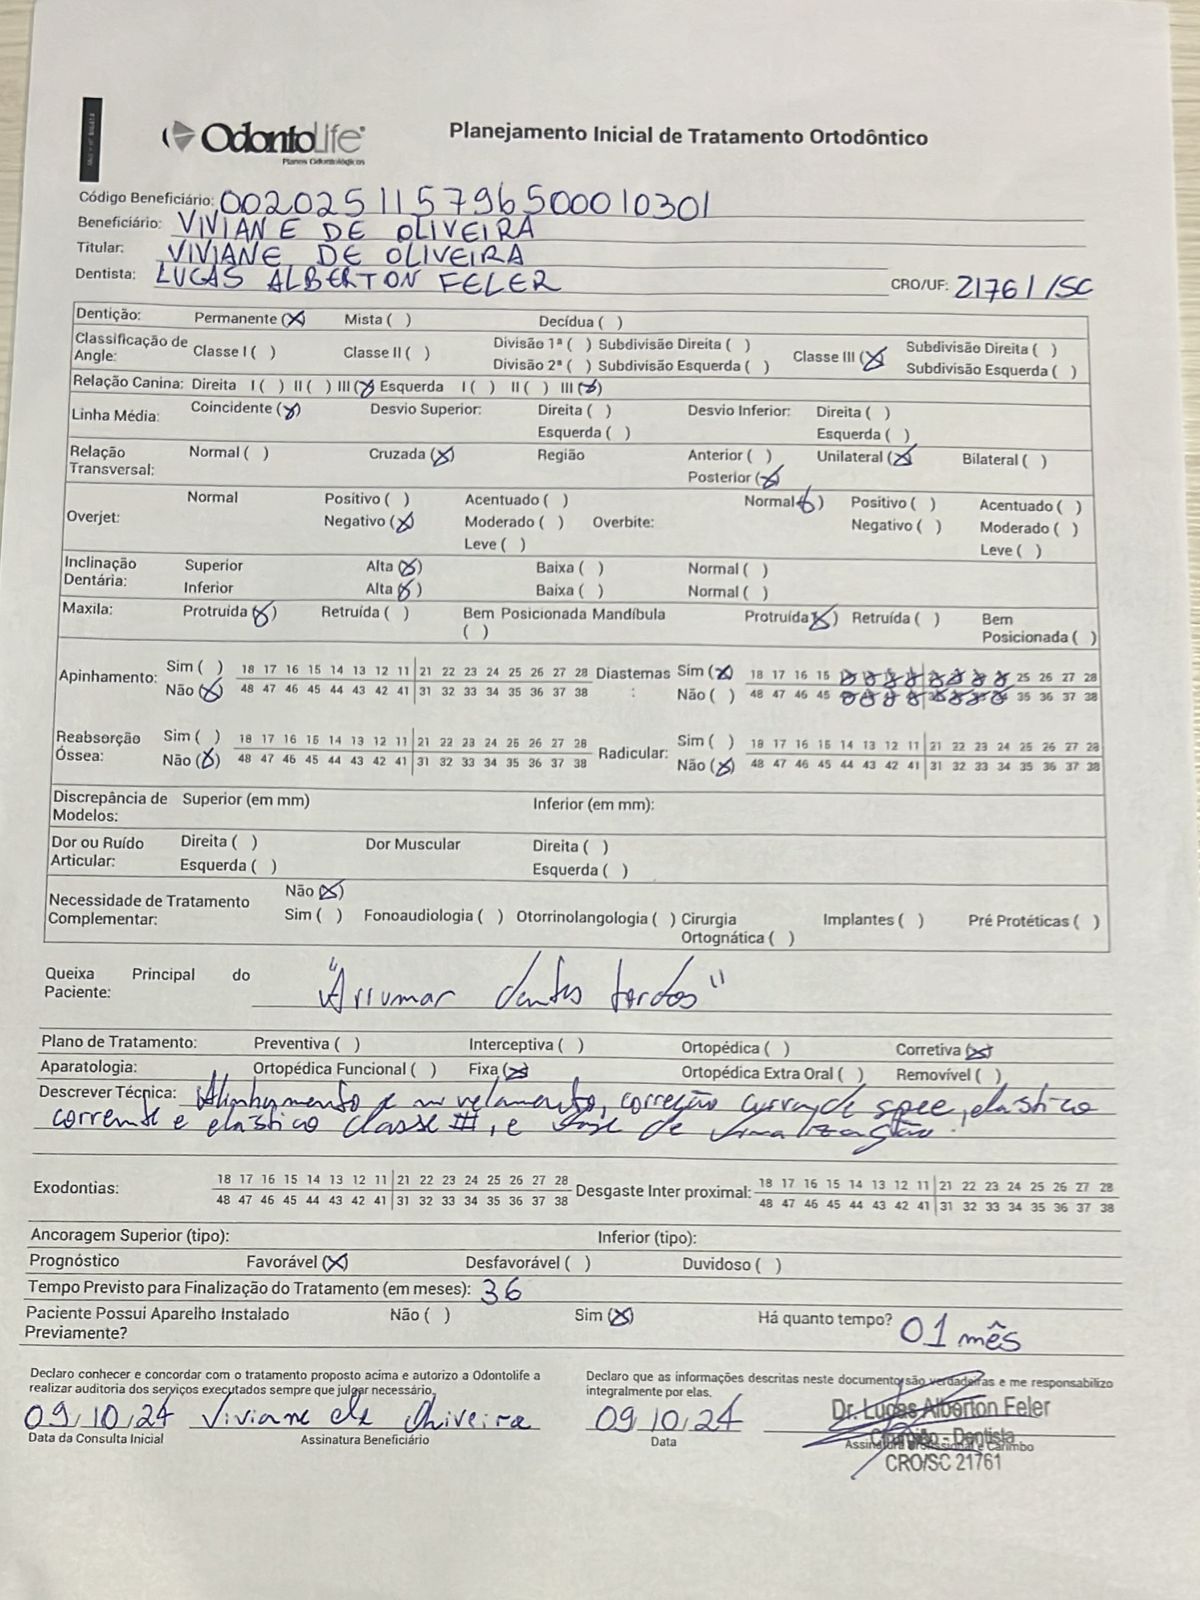 OdontoLife
Planos Odontológicos
Planejamento Inicial de Tratamento Ortodôntico
Código Beneficiário: 002025115796500010301
Beneficiário: VIVIANE DE OLIVEIRA
Titular: VIVIANE DE OLIVEIRA
Dentista: LUCAS ALBERTON FELER CRO/UF: 21761/SC
Dentição: Permanente (X) Mista ( ) Decídua ( )
Classificação de Angle: Classe I ( ) Classe II ( ) Divisão 1ª ( ) Subdivisão Direita ( ) Classe III (X) Subdivisão Direita ( )
Divisão 2ª ( ) Subdivisão Esquerda ( ) Subdivisão Esquerda ( )
Relação Canina: Direita I ( ) II ( ) III (X) Esquerda I ( ) II ( ) III (X)
Linha Média: Coincidente (X) Desvio Superior: Direita ( ) Desvio Inferior: Direita ( )
Esquerda ( ) Esquerda ( )
Relação Transversal: Normal ( ) Cruzada (X) Região Anterior ( ) Unilateral (X) Bilateral ( )
Posterior (X)
Normal Positivo ( ) Acentuado ( ) Normal (X) Positivo ( ) Acentuado ( )
Overjet: Negativo (X) Moderado ( ) Overbite: Negativo ( ) Moderado ( )
Leve ( ) Leve ( )
Inclinação Dentária: Superior Alta (X) Baixa ( ) Normal ( )
Inferior Alta (X) Baixa ( ) Normal ( )
Maxila: Protruída (X) Retruída ( ) Bem Posicionada Mandíbula ( ) Protruída (X) Retruída ( ) Bem Posicionada ( )
Apinhamento: Sim ( ) 18 17 16 15 14 13 12 11 21 22 23 24 25 26 27 28 Diastemas : Sim (X) 18 17 16 15 25 26 27 28
Não (X) 48 47 46 45 44 43 42 41 31 32 33 34 35 36 37 38 Não ( ) 48 47 46 45 35 36 37 38
Reabsorção Óssea: Sim ( ) 18 17 16 15 14 13 12 11 21 22 23 24 25 26 27 28 Radicular: Sim ( ) 18 17 16 15 14 13 12 11 21 22 23 24 25 26 27 28
Não (X) 48 47 46 45 44 43 42 41 31 32 33 34 35 36 37 38 Não (X) 48 47 46 45 44 43 42 41 31 32 33 34 35 36 37 38
Discrepância de Modelos: Superior (em mm) Inferior (em mm):
Dor ou Ruído Articular: Direita ( ) Dor Muscular Direita ( )
Esquerda ( ) Esquerda ( )
Necessidade de Tratamento Complementar: Não (X)
Sim ( ) Fonoaudiologia ( ) Otorrinolangologia ( ) Cirurgia Ortognática ( ) Implantes ( ) Pré Protéticas ( )
Queixa Principal do Paciente: "Arrumar dentes tordos"
Plano de Tratamento: Preventiva ( ) Interceptiva ( ) Ortopédica ( ) Corretiva (X)
Aparatologia: Ortopédica Funcional ( ) Fixa (X) Ortopédica Extra Oral ( ) Removível ( )
Descrever Técnica: Alinhamento e nivelamento, correção curva de spee, elástico
corrente e elástico classe III, e fase de finalização.
Exodontias: 18 17 16 15 14 13 12 11 21 22 23 24 25 26 27 28 Desgaste Inter proximal: 18 17 16 15 14 13 12 11 21 22 23 24 25 26 27 28
48 47 46 45 44 43 42 41 31 32 33 34 35 36 37 38 48 47 46 45 44 43 42 41 31 32 33 34 35 36 37 38
Ancoragem Superior (tipo): Inferior (tipo):
Prognóstico Favorável (X) Desfavorável ( ) Duvidoso ( )
Tempo Previsto para Finalização do Tratamento (em meses): 36
Paciente Possui Aparelho Instalado Previamente? Não ( ) Sim (X) Há quanto tempo? 01 mês
Declaro conhecer e concordar com o tratamento proposto acima e autorizo a Odontolife a
realizar auditoria dos serviços executados sempre que julgar necessário.
Declaro que as informações descritas neste documento são verdadeiras e me responsabilizo
integralmente por elas.
09/10/24 Viviane de Oliveira 09/10/24
Data da Consulta Inicial Assinatura Beneficiário Data Assinatura Profissional e Carimbo
Dr. Lucas Alberton Feler
Cirurgião - Dentista
CRO/SC 21761